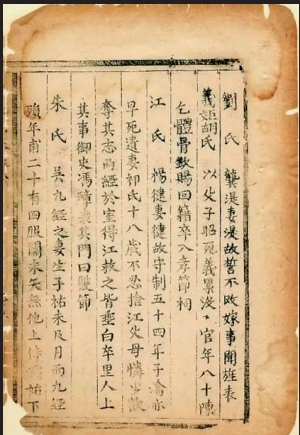 劉氏 龔漢妻漢故誓不改嫁事聞旌表
義 胡氏 以父子昭死義累洊官年八十陳
乞體骨歟賜回籍卒入孝節祠
江氏 楊健妻健故守制五十四年子 亦
早死遺妻祁氏十八歲不忍捨江父母憐少欲
奪其志而經於室得江救之皆垂白卒里人上
其事御史馮璋表其門曰雙節
朱氏 吳九經之妻生子祐未及月而九經
殞年甫二十有四服闋未矢無他上 下